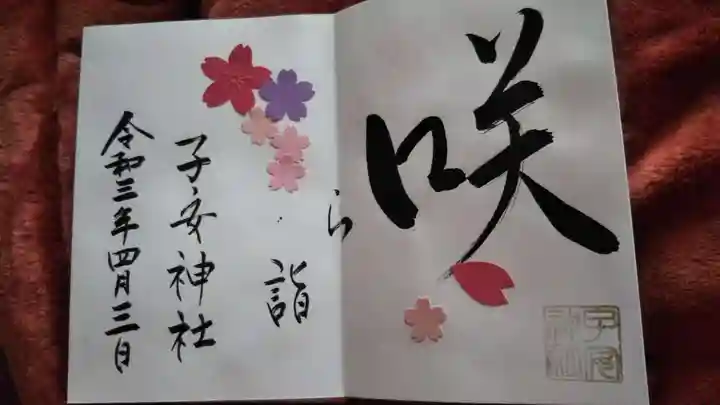 咲
ら
詣
子安神社
令和三年四月三日
子安
神社